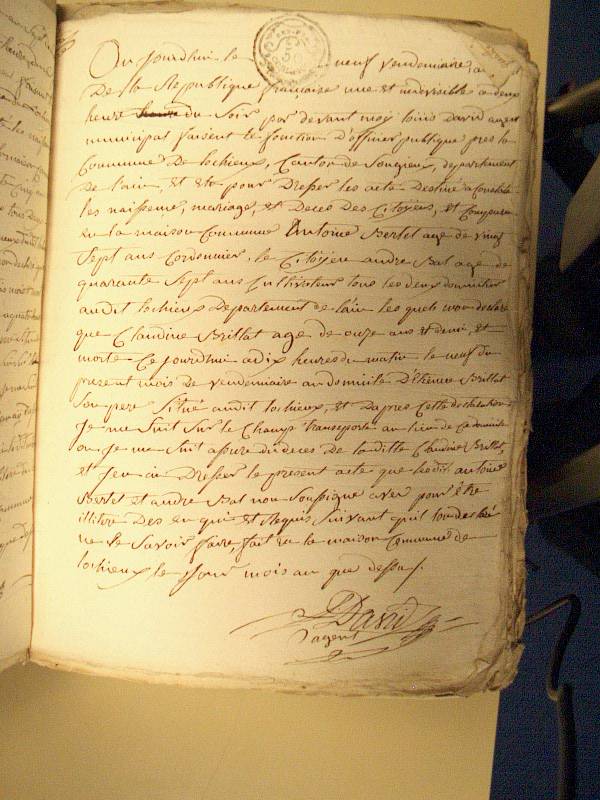 Ou jourdhui le neuf vendemiaire, an
De la Republique française une et indivisible a deux
heure du Soir par devant moy louis David agent
municipal faisent le fonction D'officier publique pres la
Commune De lochieux, Canton de Songieux, departement
De l'ain, et elu pour Dresser les acte Destine a Constater
les naissence, mariage, et Deces Des Citoÿens, et Comparu
en la maison Commune Antoine Bertet age de vingt
Sept ans Cordonnier, le Citoÿen andre Bal age de
quarante Sept ans Cultivateur tous les deux domicilies
audit lochieux Departement de l'ain les quels mon declare
que Claudine Brillat age de onze ans et demi, et
morte Ce jourdhui a dix heures du matin le neuf du
present mois De vendemiaire au domicile D'étienne Brillat
Son pere Situé audit lochieux, et Dapres Cette declaration
Je me Suit Sur le Champ transporté au lieu de Ce domicile
ou je me Suit assure du deces De la ditte Claudine Brillat,
et J'en ai Dresser le present acte que lesdit antoine
Bertet et andre Bal non Soussigne aver pour être
illitere Des en qui et Requis Suivant qu'il ton declaré
ne le Savoir faire, fait en la maison Commune de
lochieux le Jour mois an que dessus.
David
agent